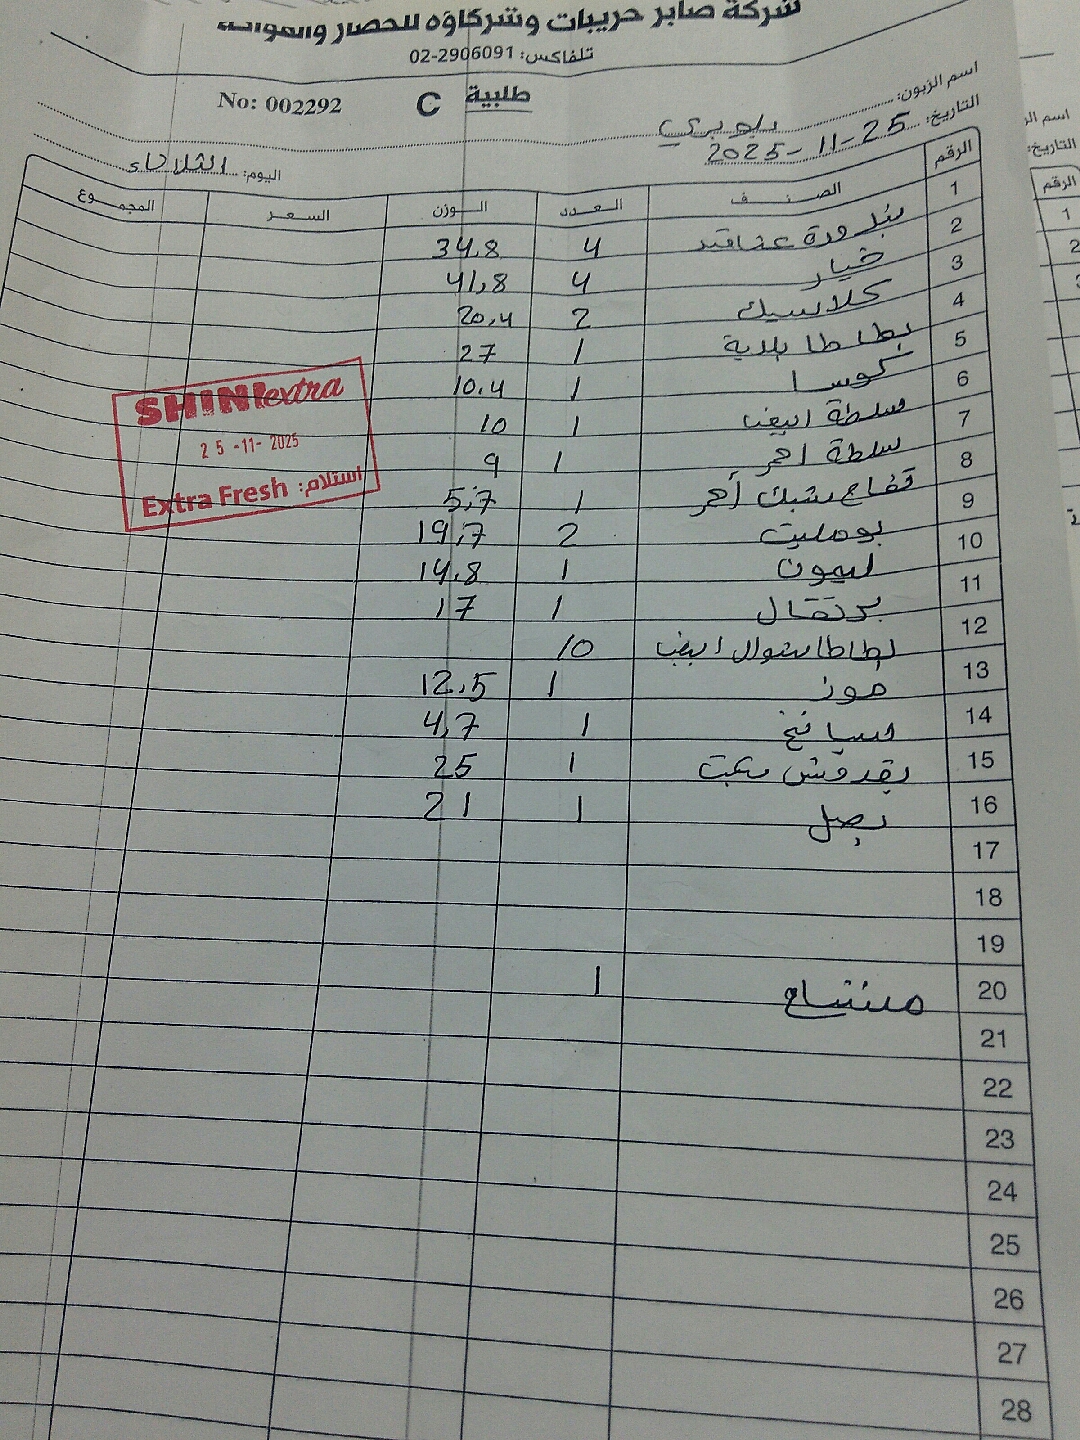 شركة صابر حريبات وشركاؤه للخضار والفواكه
تلفاكس: 02-2906091
No: 002292 C طلبية
اسم الزبون:
التاريخ: 25-11-2025
اليوم: الثلاثاء
الرقم الصنف العدد الوزن السعر المجموع
1 بندورة عناقيد 4 34.8
2 خيار 4 41,8
3 كلاسيك 2 20,4
4 بطاطا بلدية 1 27
5 كوسا 1 10.4
6 سلطة ابيض 1 10
7 سلطة احمر 1 9
8 تفاح شبك أحمر 1 5,7
9 بومليت 2 19,7
10 ليمون 1 14.8
11 برتقال 1 17
12 بطاطا شوال ابيض 10
13 موز 1 12.5
14 سبانخ 1 4,7
15 بقدونس 1 25
16 بصل 1 21
17
18
19
20 1
21
22
23
24
25
26
27
28
SHINI extra
25-11-2025
Extra Fresh استلام:
اسم الز
التاريخ:
الرقم
1
2
3